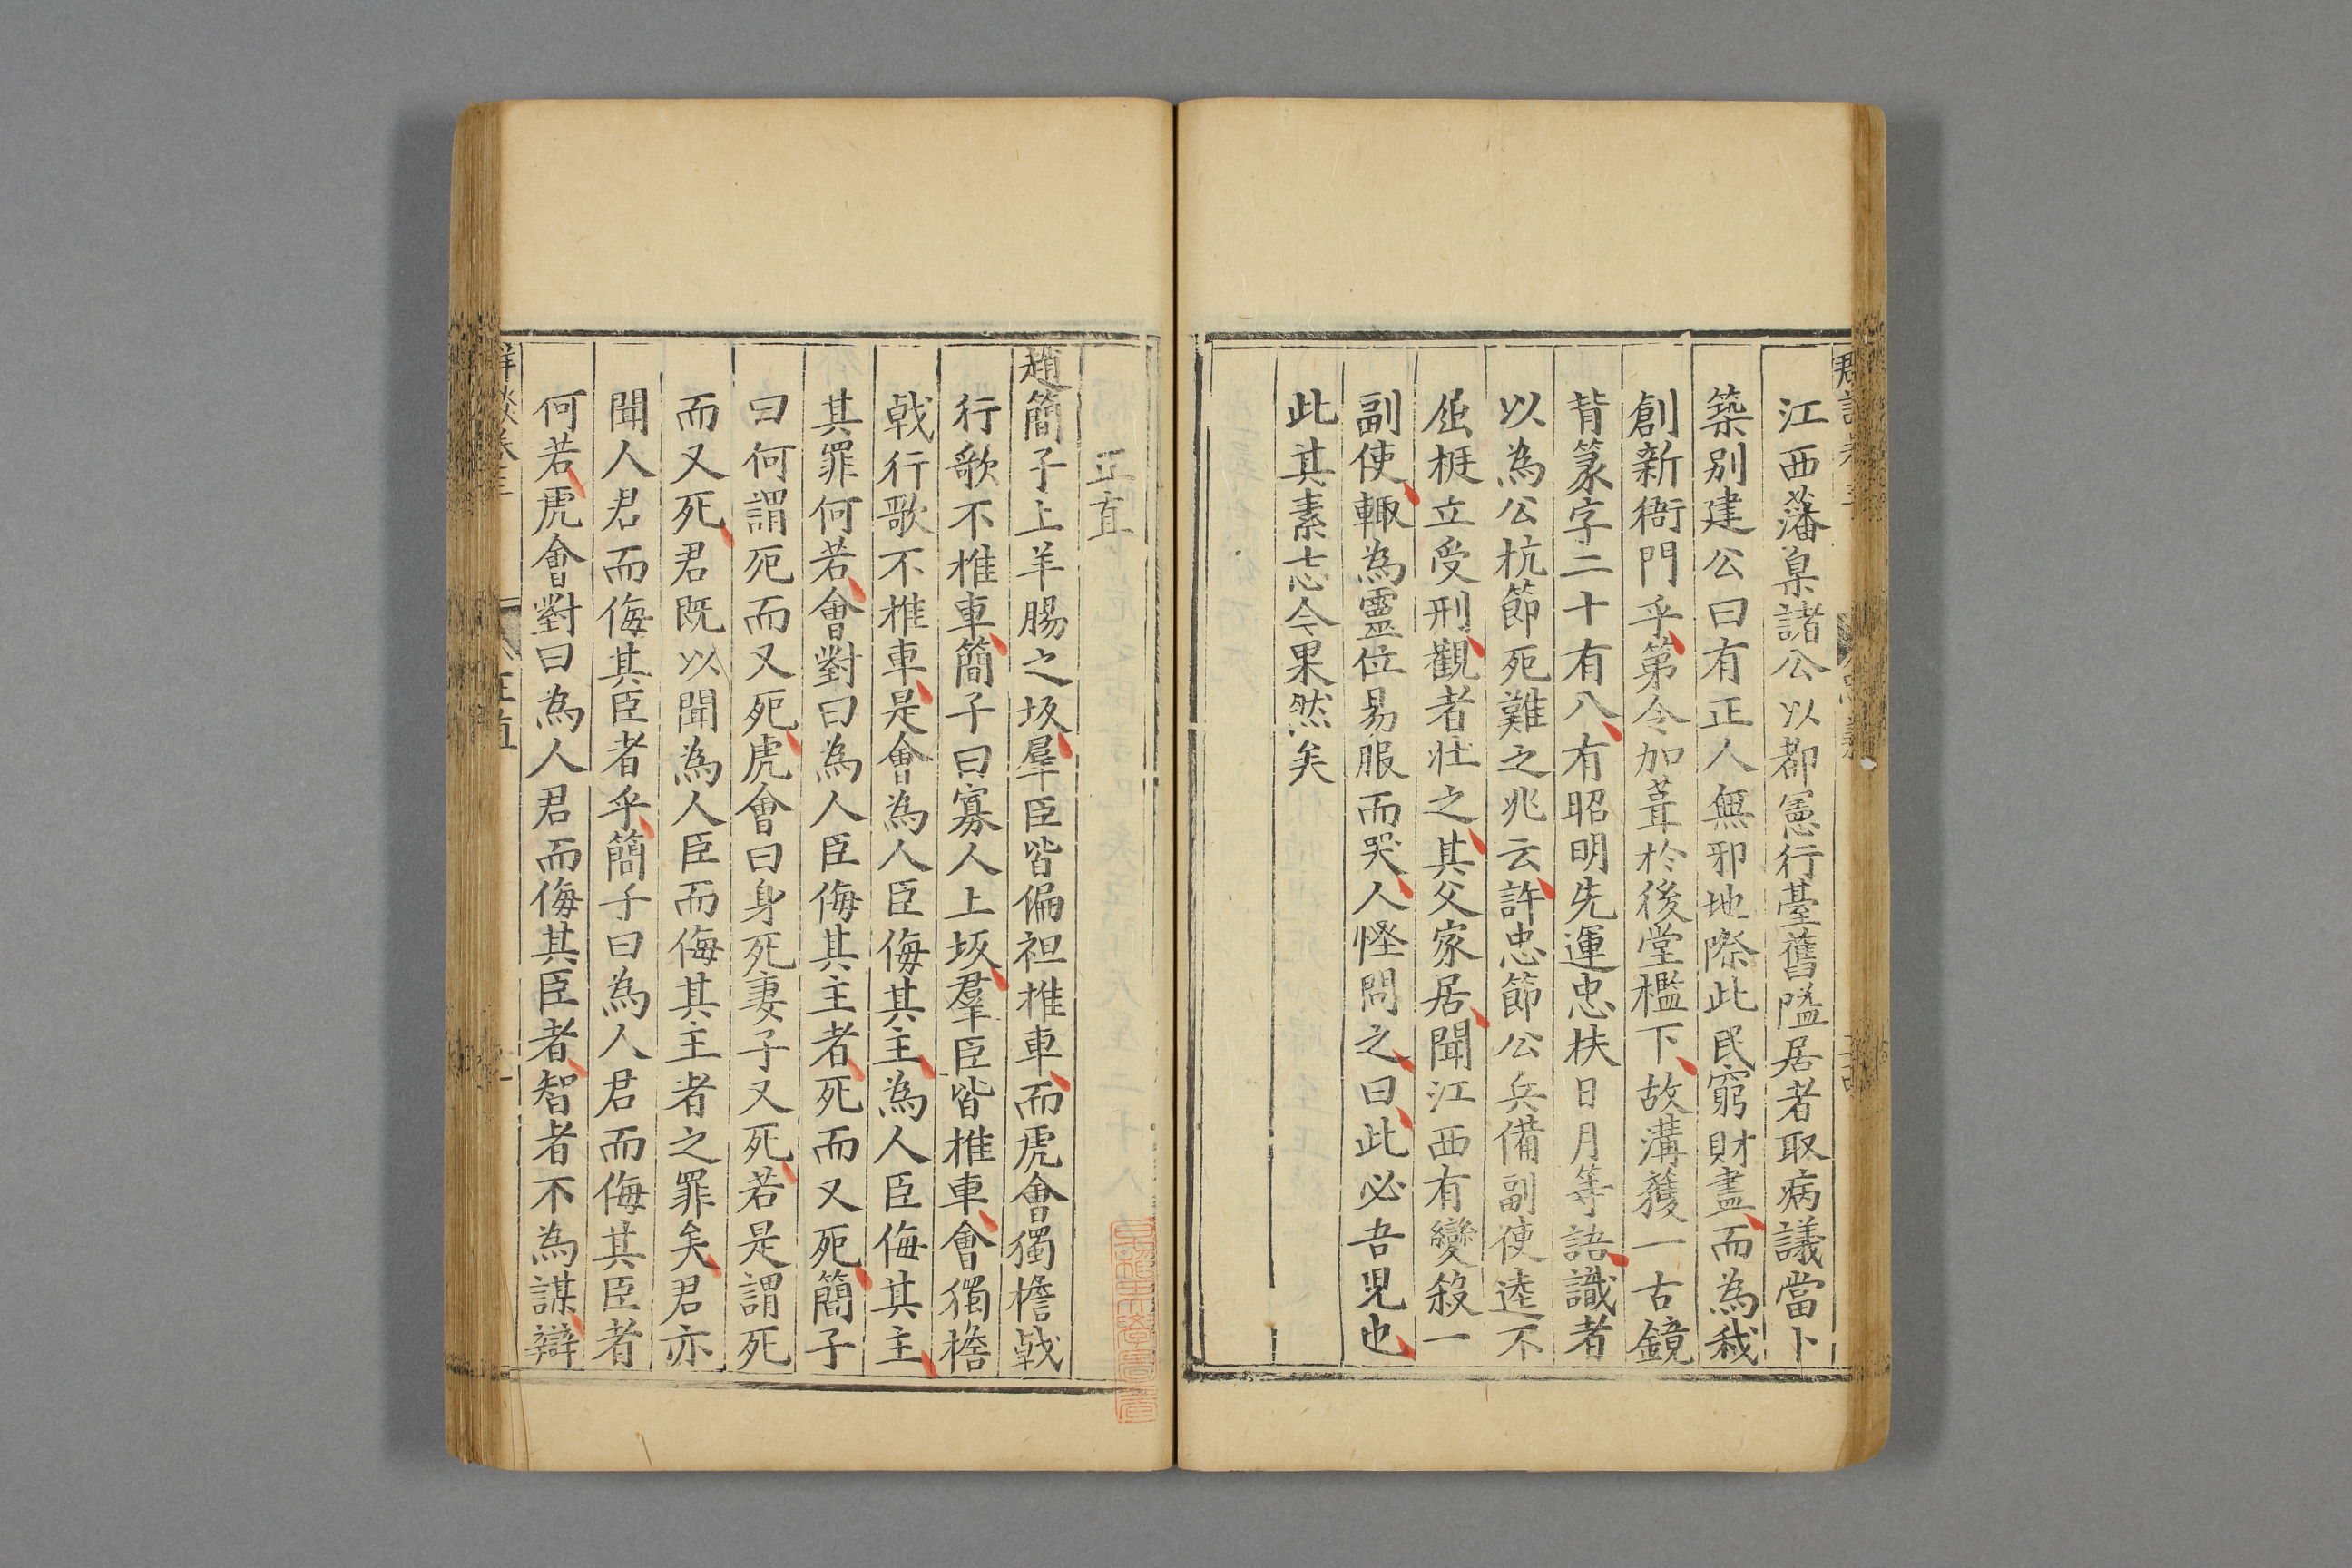 江西藩臬諸公以都憲行臺舊隘居者取病議當卜
築別建公曰有正人無邪地際此民窮財盡而為我
創新衙門乎第令加葺於後堂檻下故溝獲一古鏡
背篆字二十有八有昭明先運忠扶日月等語識者
以為公杭節死難之兆云許忠節公兵備副使逵不
屈梃立受刑觀者壯之其父家居聞江西有變殺一
副使輙為靈位易服而哭人怪問之曰此必吾児也
此其素志今果然矣
正直
趙簡子上羊腸之坂羣臣皆偏袒推車而虎會獨檐戟
行歌不推車簡子曰寡人上坂羣臣皆推車會獨檐
戟行歌不推車是會為人臣侮其主為人臣侮其主
其罪何若會對曰為人臣侮其主者死而又死簡子
曰何謂死而又死虎會曰身死妻子又死若是謂死
而又死君既以聞為人臣而侮其主者之罪矣君亦
聞人君而侮其臣者乎簡子曰為人君而侮其臣者
何若虎會對曰為人君而侮其臣者智者不為謀辯
群談卷三 正直